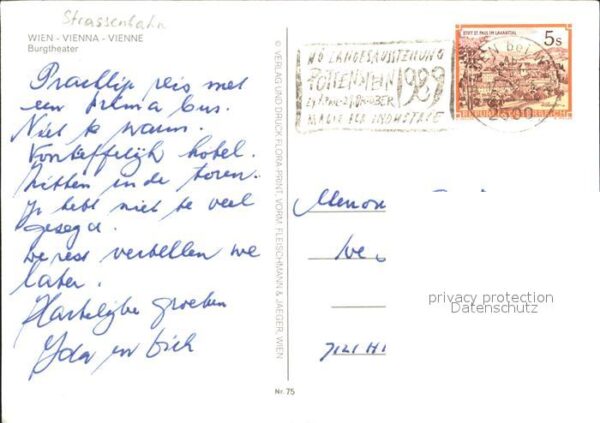 Strassenbahn
WIEN - VIENNA - VIENNE
Burgtheater
Prachtig reis met
een prima bus.
Niet te warm.
Vortreffelijk hotel.
Zitten in de toren.
Je hebt niet te veel
gezegd.
De rest vertellen we
later.
Hartelijke groeten
Ida en Dick
© VERLAG UND DRUCK FLORA-PRINT, VORM. FLEISCHMANN & JAEGER, WIEN
Nr. 75
NÖ LANDESAUSSTELLUNG
POTTENSTEIN 1989
MAGIE DER INDUSTRIE
STIFT ST. PAUL IM LAVANTTAL
5 s
REPUBLIK ÖSTERREICH
privacy protection
Datenschutz